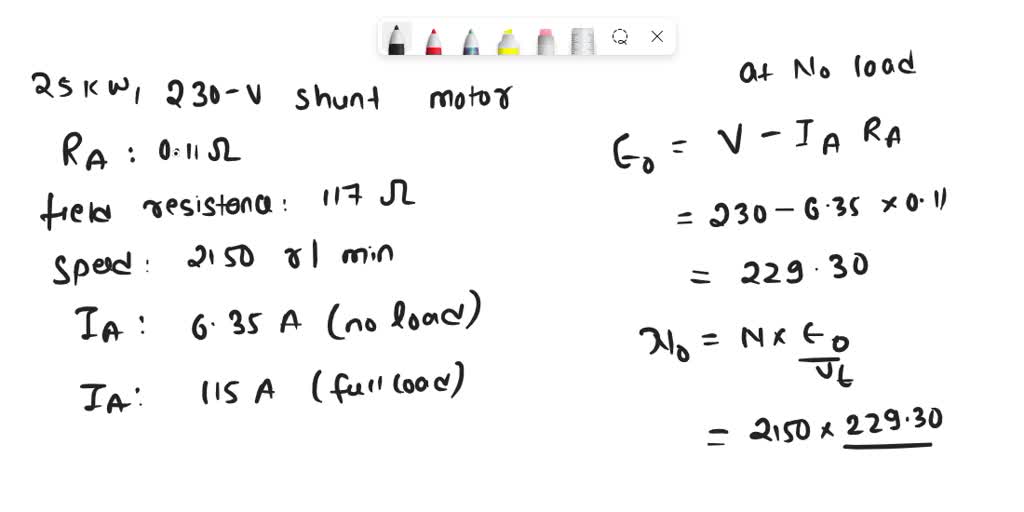 25 KW, 230-V shunt motor
RA : 0.11 Ω
field resistance: 117 Ω
Speed: 2150 r/min
IA : 6.35 A (no load)
IA : 115 A (full load)
at No load
E0 = V - IA RA
= 230 - 6.35 × 0.11
= 229.30
N0 = N × E0 / Vt
= 2150 × 229.30